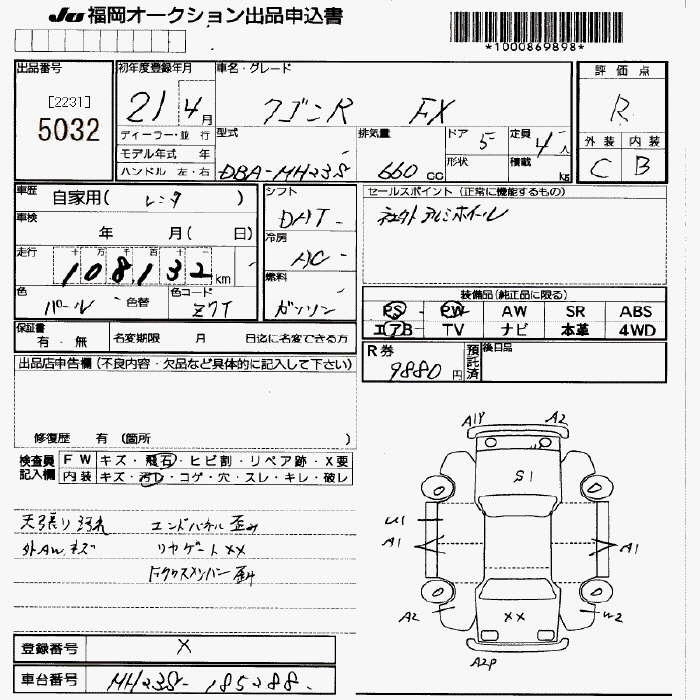 JU 福岡オークション出品申込書
*1000869898*
出品番号
[2231]
5032
初年度登録年月
21 4月
ディーラー・並行
モデル年式 年
ハンドル 左・右
車名・グレード
ワゴンR FX
型式
DBA-MH23S
排気量
660cc
ドア 5
定員 4人
形状
積載 kg
評価点
R
外装 内装
C B
車歴 自家用( レンタ )
車検 年 月( 日)
走行 十 万 千 百 十
108132km
色 パール 色替
色コード Z7T
シフト
DAT
冷房
AC
燃料
ガソリン
セールスポイント (正常に機能するもの)
社外アルミホイール
装備品(純正品に限る)
PS PW AW SR ABS
エアB TV ナビ 本革 4WD
保証書 有・無
名変期限 月 日迄に名変できる方
R券 9880円
預託済
後日品
出品店申告欄 (不良内容・欠品など具体的に記入して下さい)
修復歴 有 (箇所 )
検査員記入欄
FW キズ・飛石・ヒビ割・リペア跡・X要
内装 キズ・汚レ・コゲ・穴・スレ・キレ・破レ
天張り汚れ エンドパネル歪み
外AW.キズ リヤゲートXX
A1P A2
S1
U1
A1 A1
A2 XX W2
A2P
登録番号 X
車台番号 MH23S-185288